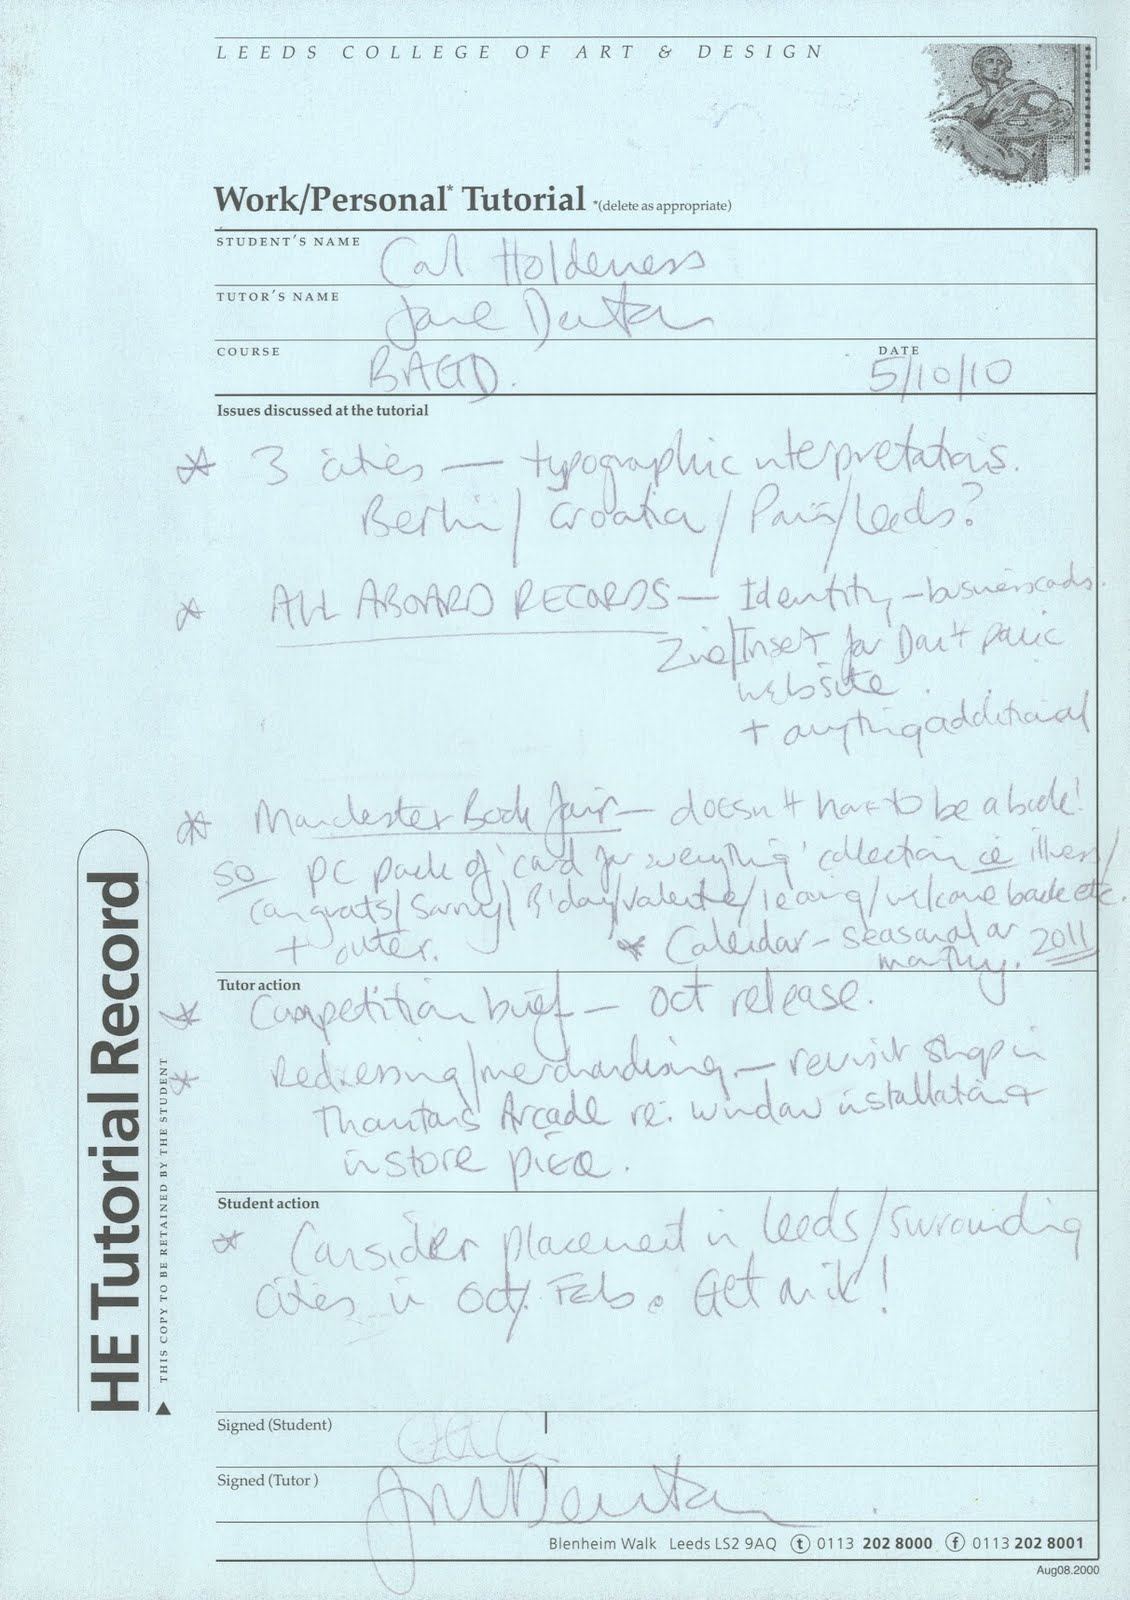 LEEDS COLLEGE OF ART & DESIGN
Work/Personal* Tutorial *(delete as appropriate)
STUDENT'S NAME Holdeness
TUTOR'S NAME Jane Denton
COURSE BAGD. DATE 5/10/10
Issues discussed at the tutorial
* 3 cities — typographic interpretations.
Berlin / Croatia / Paris / Leeds?
* ALL ABOARD RECORDS — Identity, – business cards.
Zine/Insert for Don't panic
website.
+ anything additional
* Manchester Book Fair — doesn't have to be a book!
so PC pack of 'card for everything' collection ie illness/
congrats/sorry/B'day/valentine/leaving/welcome back etc.
+ outer. * Calendar – seasonal or 2011
monthly.
Tutor action
* Competition brief — Oct release.
* Redressing/merchandising. — revisit shop in
Thorntons Arcade re: window installation +
instore piece.
Student action
* Consider placement in Leeds/surrounding
cities in Oct/Feb. Get milk!
Signed (Student)
Signed (Tutor) Denton
Blenheim Walk Leeds LS2 9AQ t 0113 202 8000 f 0113 202 8001
Aug08.2000
HE Tutorial Record
THIS COPY TO BE RETAINED BY THE STUDENT